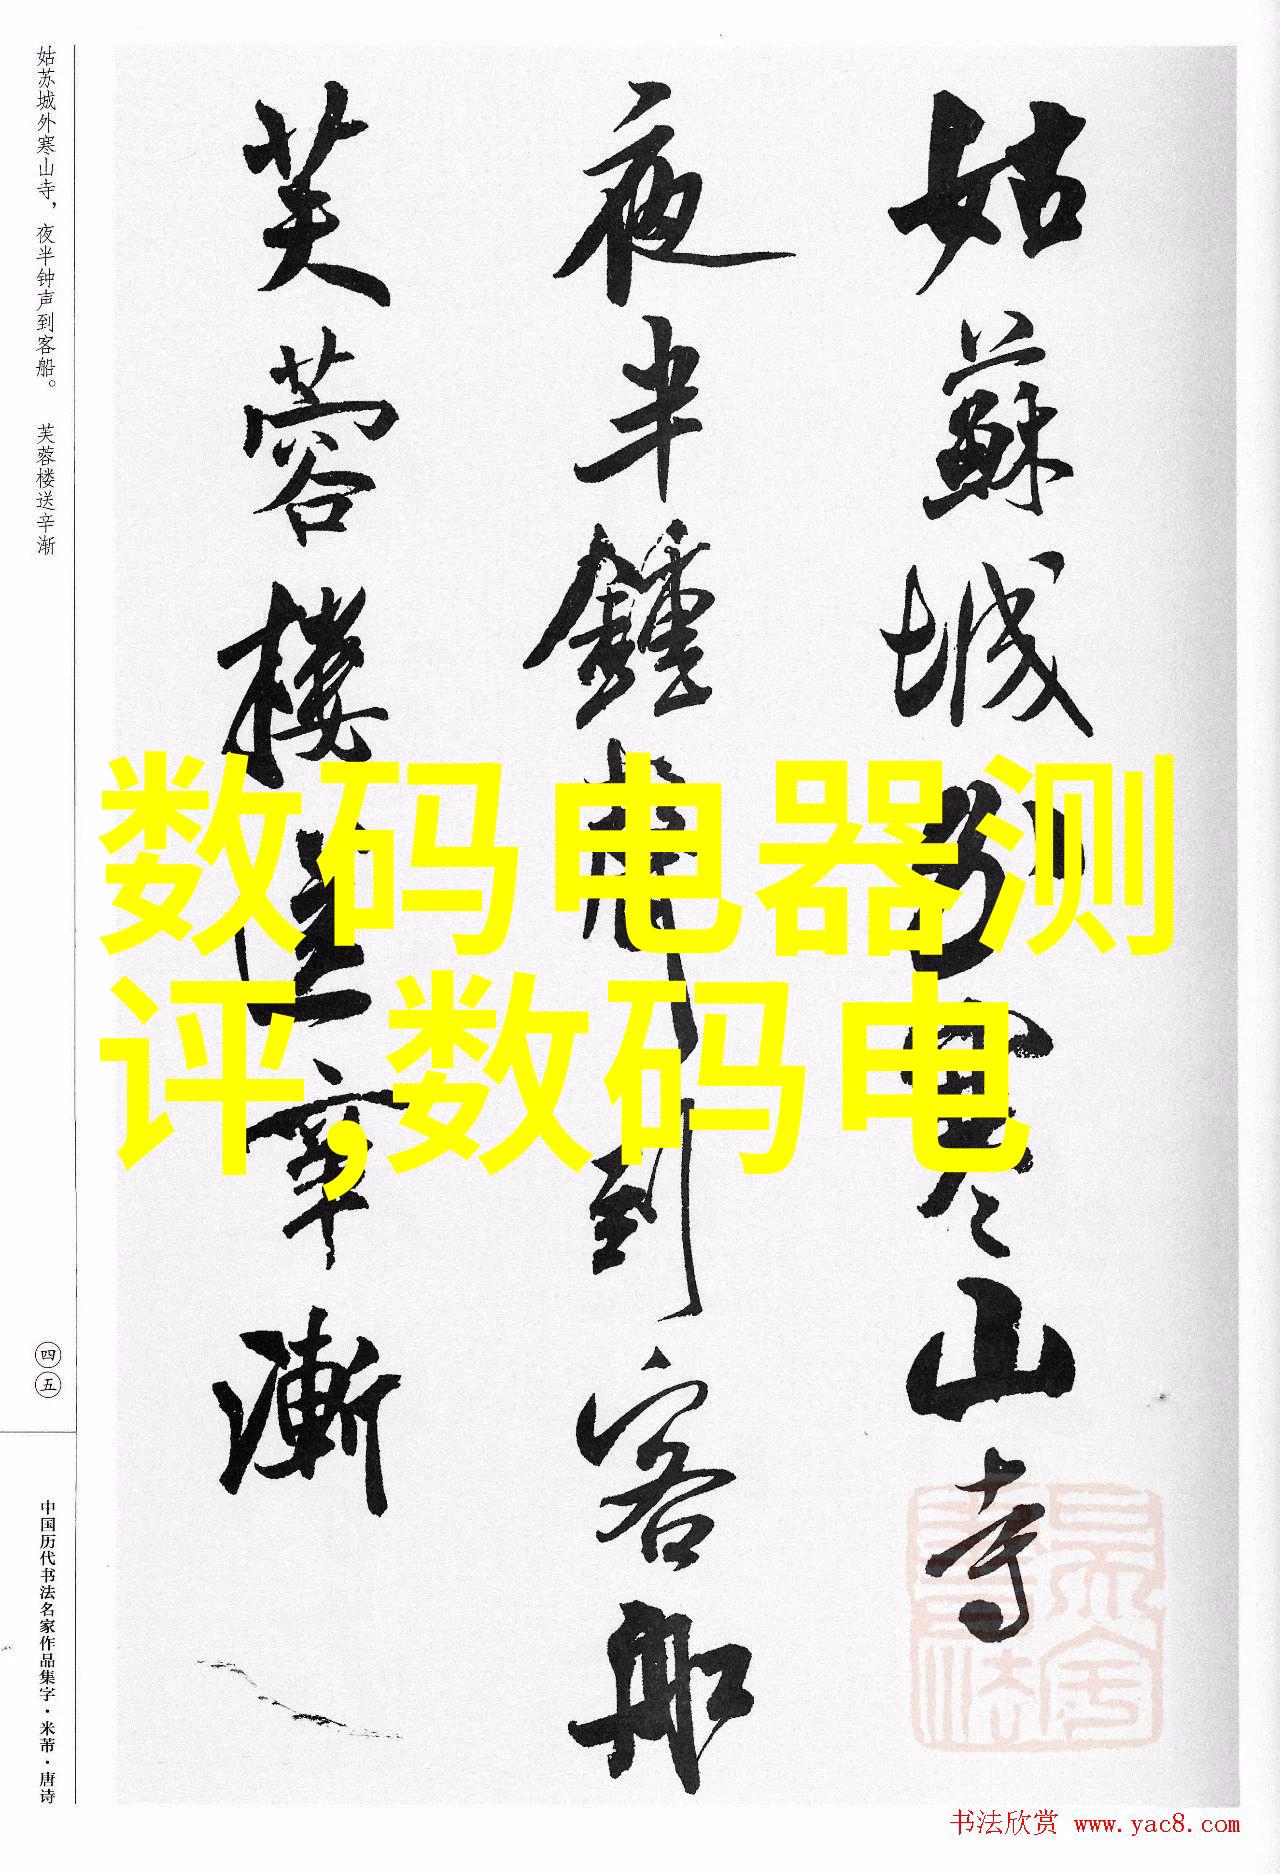 姑蘇城外寒山寺
夜半鍾聲到客船
芙蓉樓送辛漸
姑苏城外寒山寺，夜半钟声到客船。 芙蓉楼送辛渐
四五
中国历代书法名家作品集字·米芾·唐诗
数码电器测
评,数码电
书法欣赏 www.yac8.com